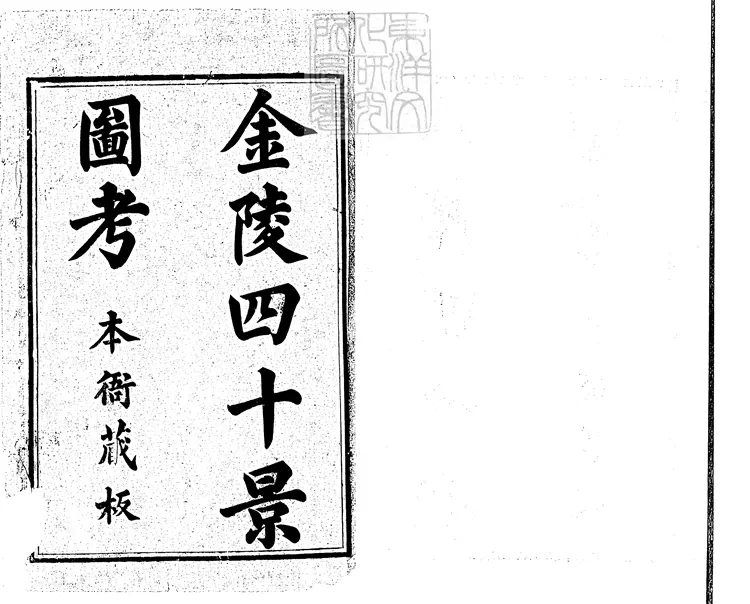 金陵四十景
圖考
本衙蔵板
東洋文
化研究
所圖書